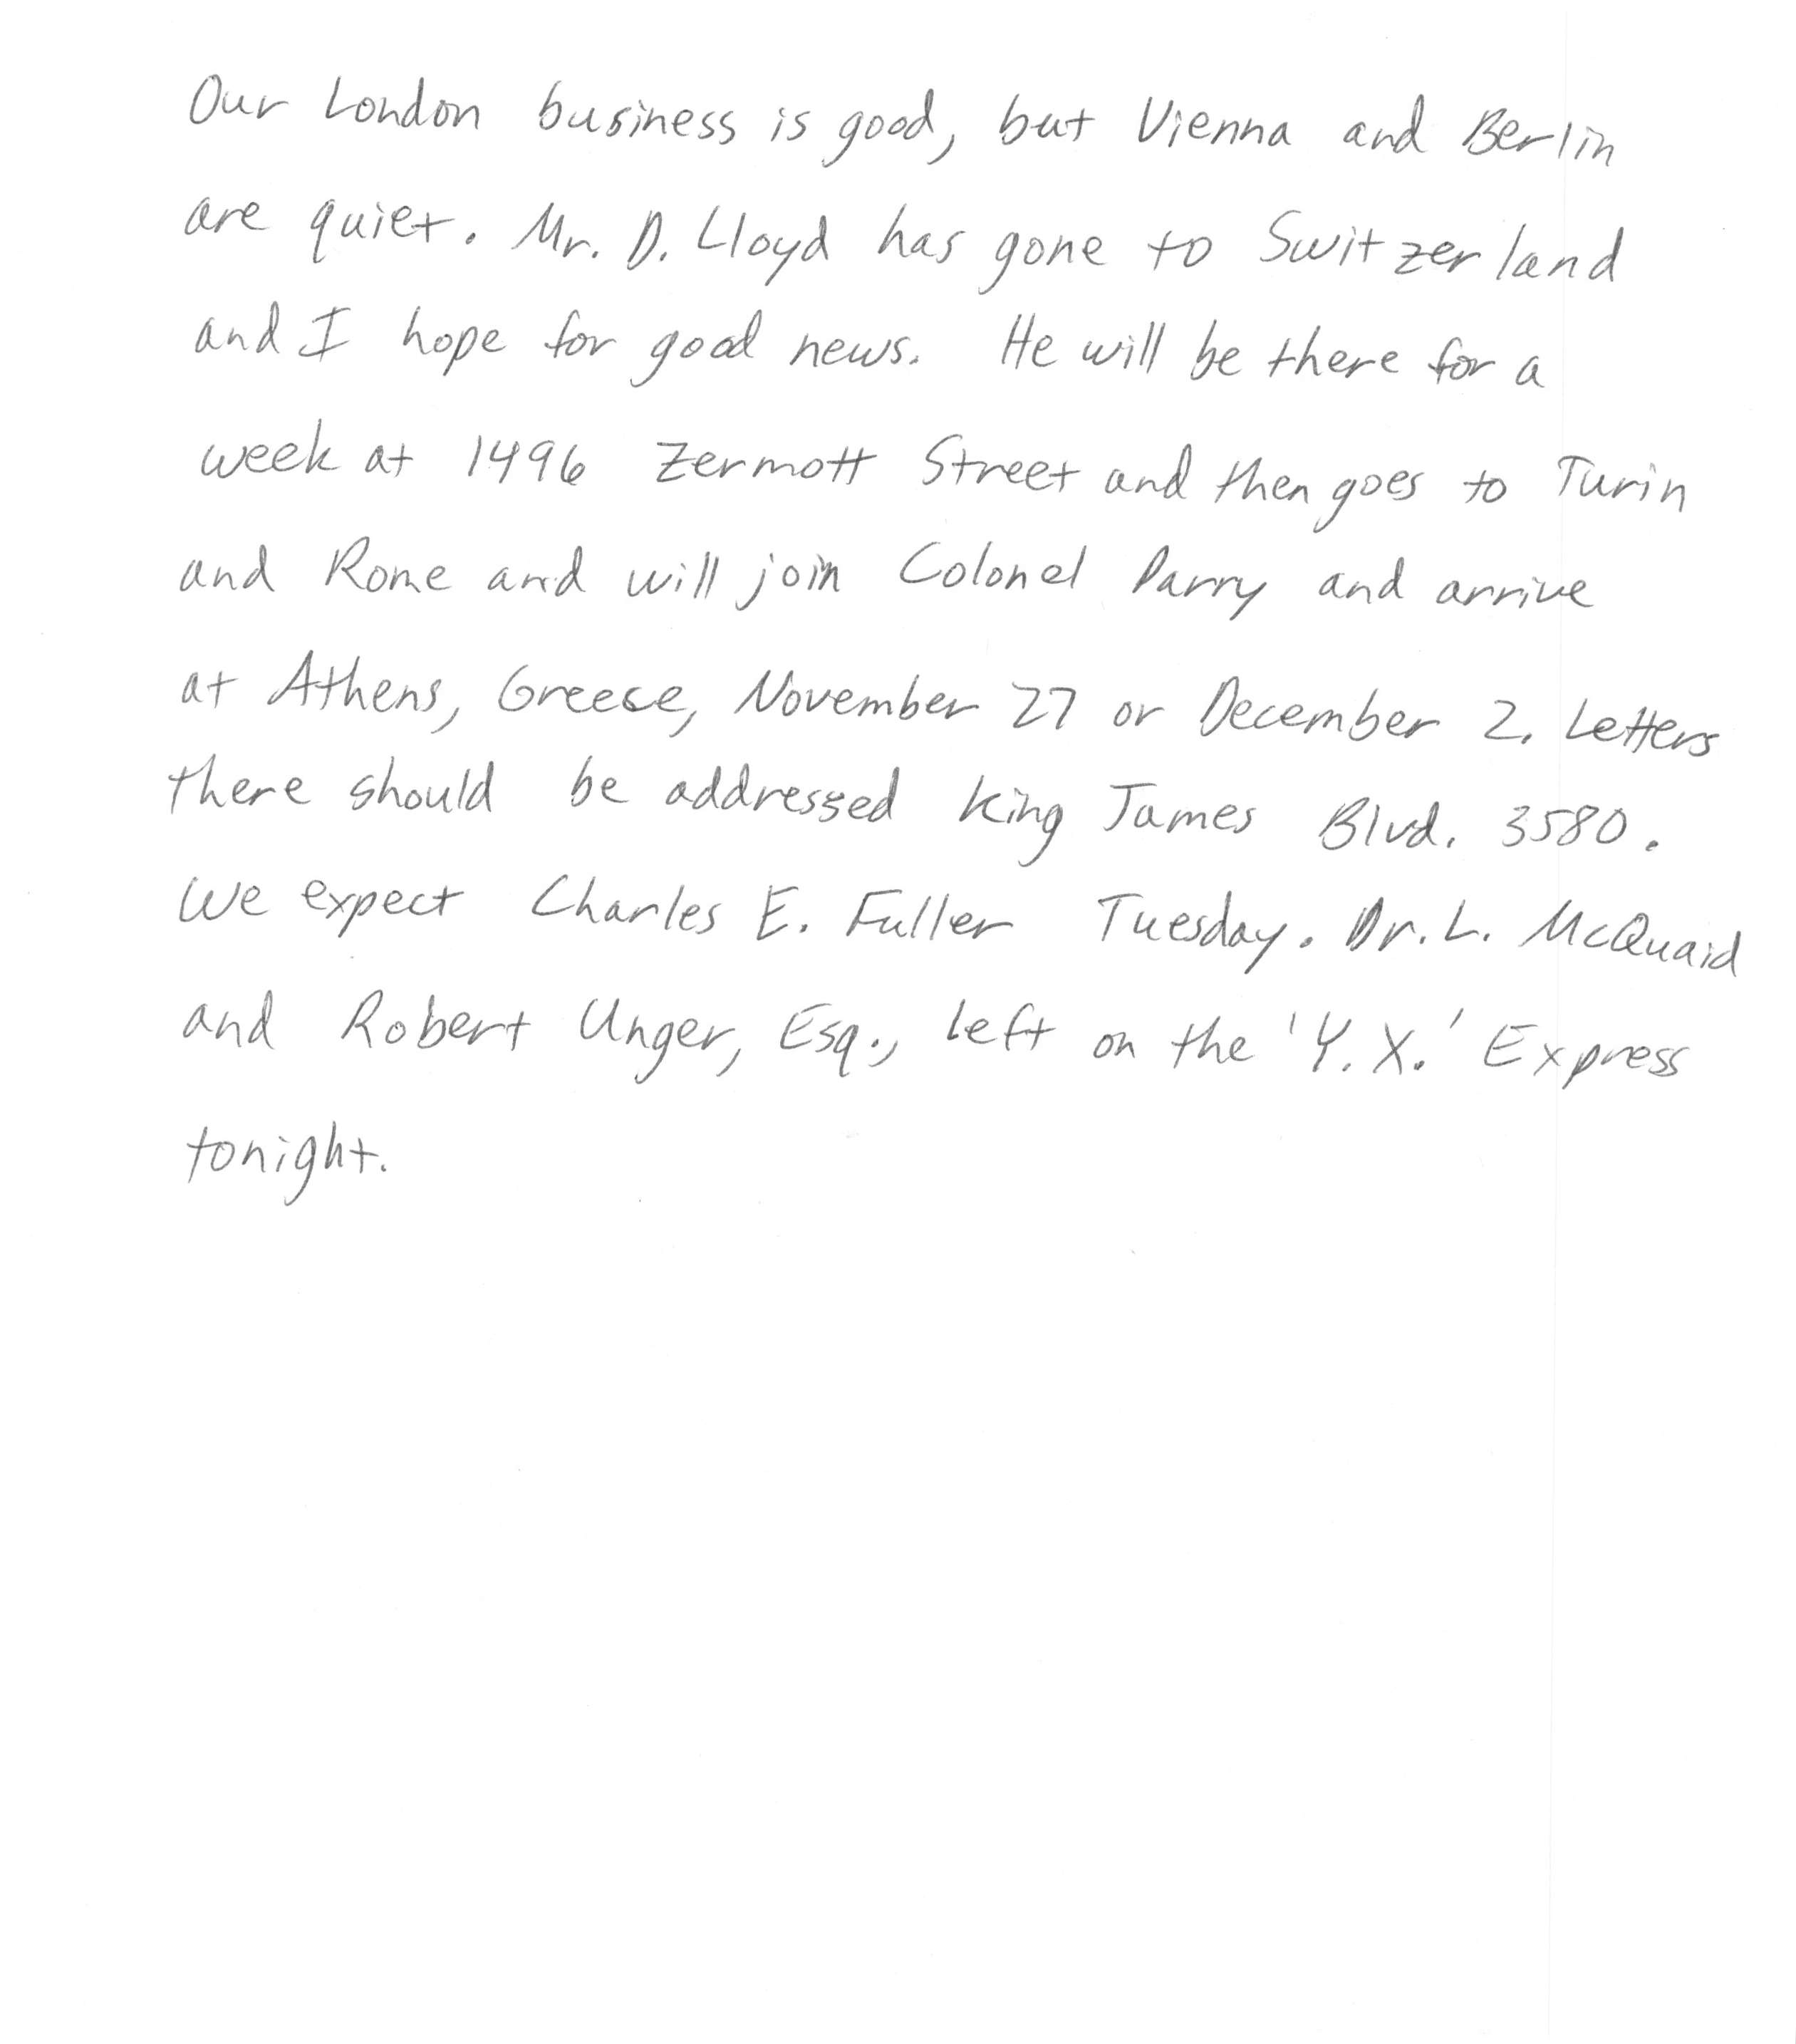 Our London business is good, but Vienna and Berlin
are quiet. Mr. D. Lloyd has gone to Switzerland
and I hope for good news. He will be there for a
week at 1496 Zermott Street and then goes to Turin
and Rome and will join Colonel Parry and arrive
at Athens, Greece, November 27 or December 2. Letters
there should be addressed King James Blvd. 3580.
We expect Charles E. Fuller Tuesday. Dr. L. McQuaid
and Robert Unger, Esq., left on the 'Y. X.' Express
tonight.